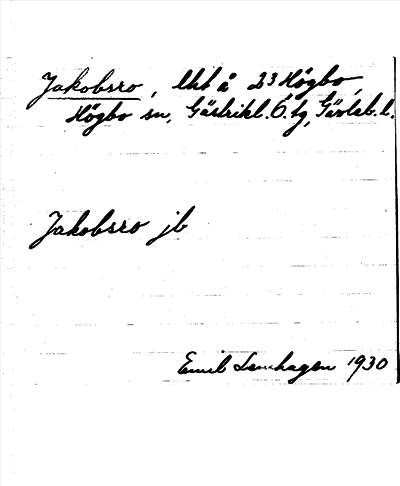 Jakobsro, lht å 23 Högbo,
Högbo sn, Gästrikl. Ö. tg, Gävleb. l.
Jakobsro jb
Emil Lemhagen 1930